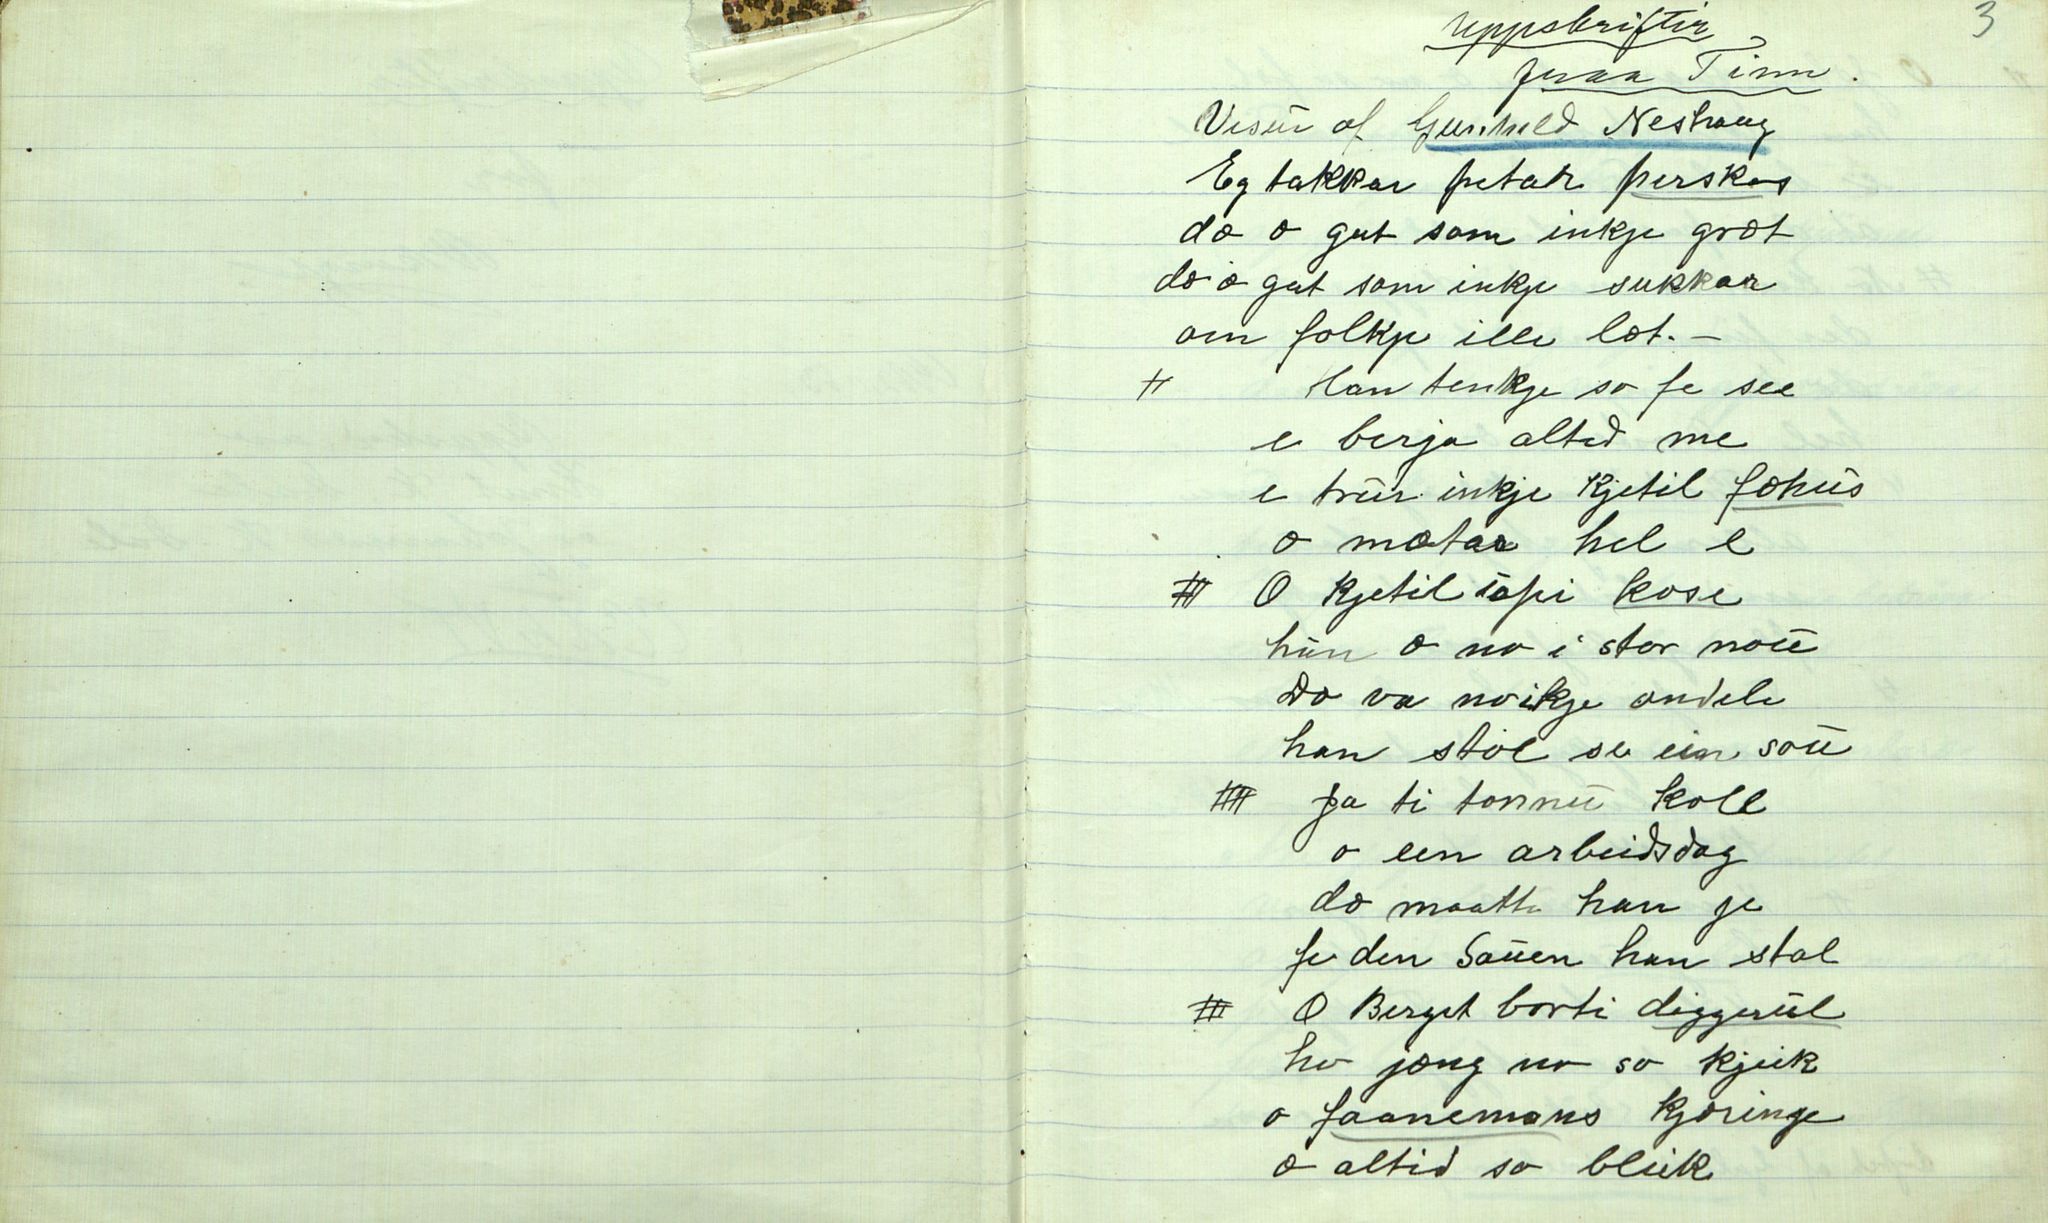 3
Uppskriftir
fraa Tinn.
Visur af Gunhild Neshaug
Eg takkar petar perskas
dæ æ gut som inkje græt
dæ æ gut som inkje sukkar
om folkje ille læt. –
# Han tenkje so fe see
e berja altid me
e trur inkje Kjetil fæhus
o mætar hel e
# O Kjetil i kose
hun æ no i stor nou
Dæ va no ikje andele
han stol se ein sou
# ja ti tonnu koll
o een arbeidsdag
dæ maatte han je
fe den Sauen han stal
# O Berget borti diggerul
ho jæng no so kjeik
o faanemans kjæringe
æ altid so bleik